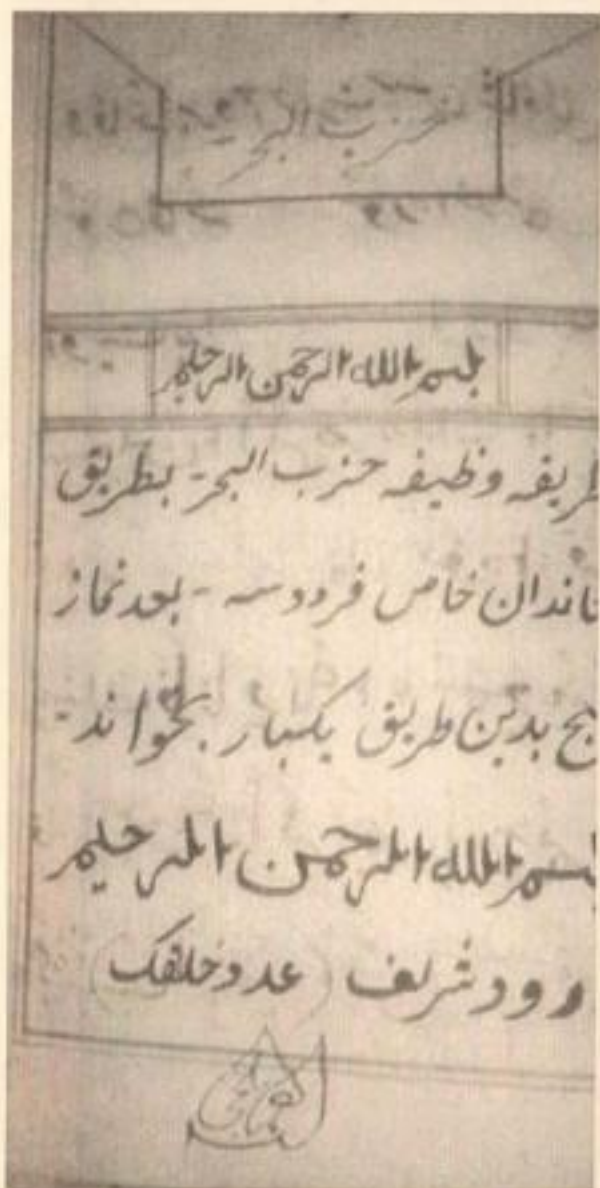 حزب البحر
بسم الله الرحمن الرحیم
طریقہ وظیفہ حزب البحر - بطریق
خاندان خاص فردوسہ - بعد نماز
بدین طریق یکبار بخواند -
بسم الله الرحمن الرحیم
درود شریف (عدد خلقک)